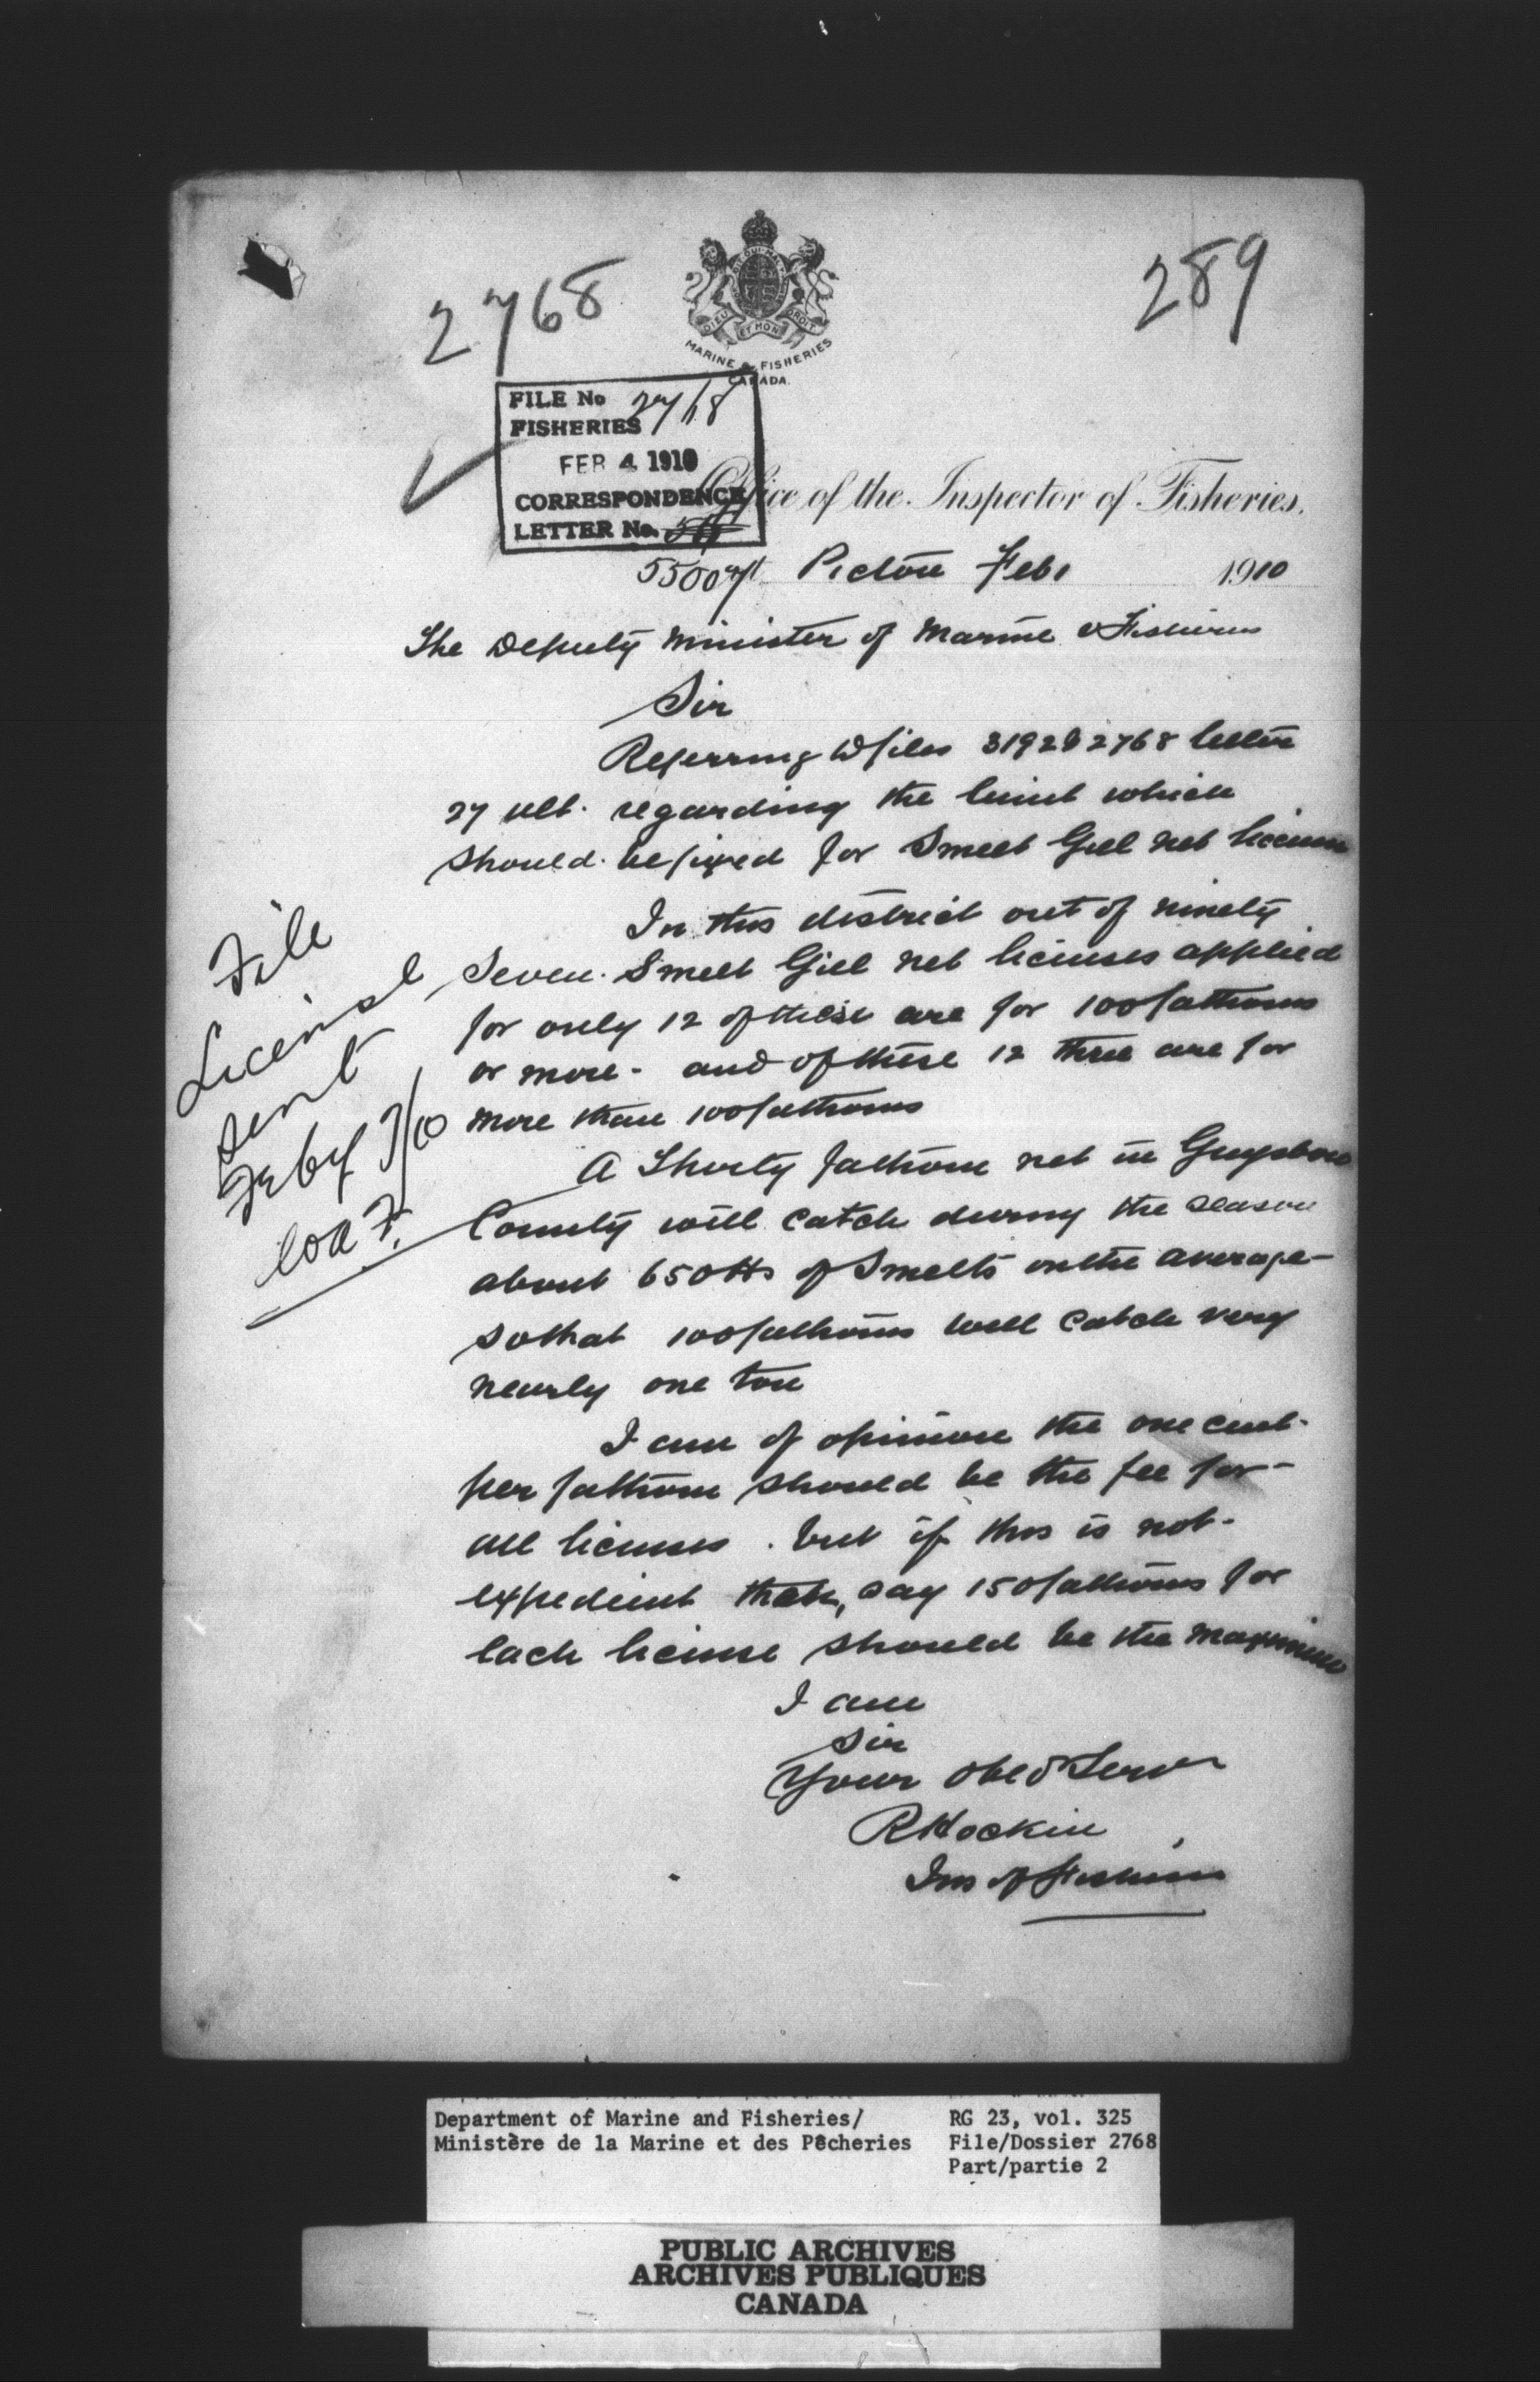 2768
289
DIEU ET MON DROIT
MARINE & FISHERIES
CANADA.
FILE No 2768
FISHERIES
FEB 4 1910
CORRESPONDENCE
LETTER No.
Office of the Inspector of Fisheries.
Pictou Feb 1 1910
The Deputy Minister of Marine & Fisheries
Sir
Referring to files 3192 & 2768 letter
27 ult. regarding the limit which
should be fixed for Smelt Gill net license
In this district out of ninety
Seven Smelt Gill net licenses applied
for only 12 of these are for 100 fathoms
or more - and of these 12 three are for
more than 100 fathoms
A Thirty fathom net in Guysboro
County will catch during the season
about 650 lbs of Smelts on the average -
so that 100 fathoms will catch very
nearly one ton
I am of opinion the one cent
per fathom should be the fee for -
all licenses . but if this is not -
expedient then, say 150 fathoms for
each license should be the maximum
I am
Sir
Your Obed Serv
R Hockin
Ins of Fisheries
File
License
sent
Feby 7/10
Public ARCHIVES